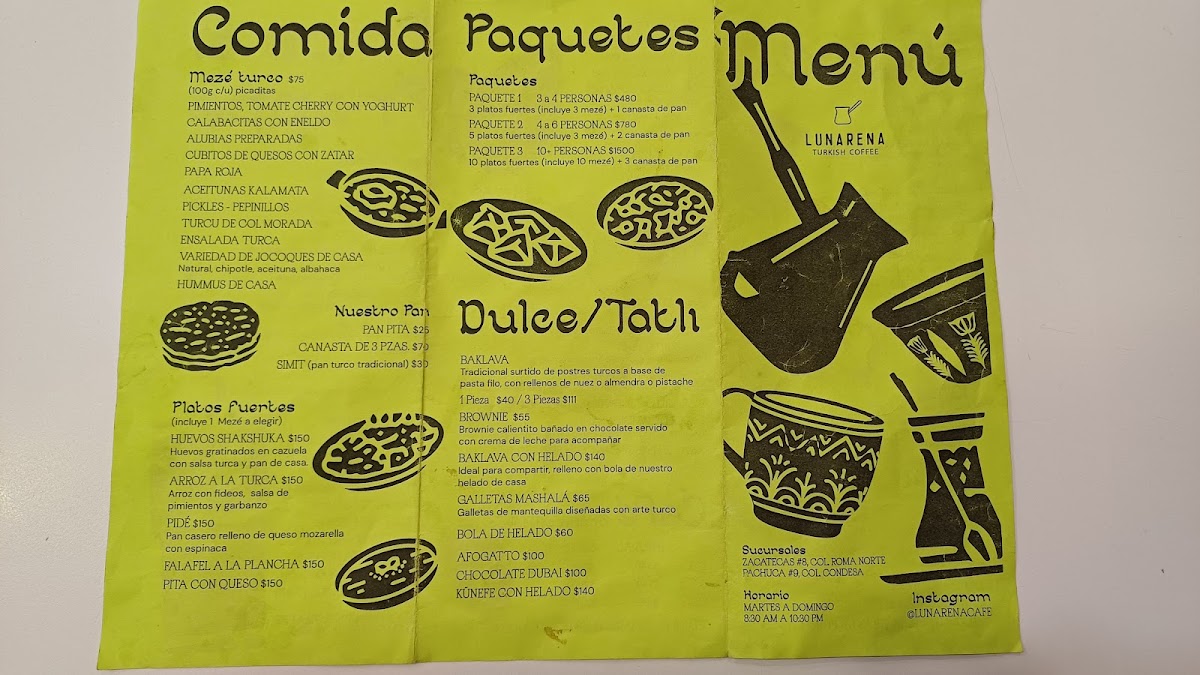 Comida
Mezé turco $75
(100g c/u) picaditas
PIMIENTOS, TOMATE CHERRY CON YOGHURT
CALABACITAS CON ENELDO
ALUBIAS PREPARADAS
CUBITOS DE QUESOS CON ZATAR
PAPA ROJA
ACEITUNAS KALAMATA
PICKLES - PEPINILLOS
TURCU DE COL MORADA
ENSALADA TURCA
VARIEDAD DE JOCOQUES DE CASA
Natural, chipotle, aceituna, albahaca
HUMMUS DE CASA
Nuestro Pan
PAN PITA $25
CANASTA DE 3 PZAS. $70
SIMIT (pan turco tradicional) $30
Platos fuertes
(incluye 1 Mezé a elegir)
HUEVOS SHAKSHUKA $150
Huevos gratinados en cazuela
con salsa turca y pan de casa.
ARROZ A LA TURCA $150
Arroz con fideos, salsa de
pimientos y garbanzo
PIDÉ $150
Pan casero relleno de queso mozarella
con espinaca
FALAFEL A LA PLANCHA $150
PITA CON QUESO $150
Paquetes
Paquetes
PAQUETE 1 3 a 4 PERSONAS $480
3 platos fuertes (incluye 3 mezé) + 1 canasta de pan
PAQUETE 2 4 a 6 PERSONAS $780
5 platos fuertes (incluye 3 mezé) + 2 canasta de pan
PAQUETE 3 10+ PERSONAS $1500
10 platos fuertes (incluye 10 mezé) + 3 canasta de pan
Dulce/Tatlı
BAKLAVA
Tradicional surtido de postres turcos a base de
pasta filo, con rellenos de nuez o almendra o pistache
1 Pieza $40 / 3 Piezas $111
BROWNIE $55
Brownie calientito bañado en chocolate servido
con crema de leche para acompañar
BAKLAVA CON HELADO $140
Ideal para compartir, relleno con bola de nuestro
helado de casa
GALLETAS MASHALÁ $65
Galletas de mantequilla diseñadas con arte turco
BOLA DE HELADO $60
AFOGATTO $100
CHOCOLATE DUBAI $100
KÜNEFE CON HELADO $140
Menú
LUNARENA
TURKISH COFFEE
Sucursales
ZACATECAS #8, COL. ROMA NORTE
PACHUCA #9, COL. CONDESA
Horario
MARTES A DOMINGO
8:30 AM A 10:30 PM
Instagram
@LUNARENACAFE